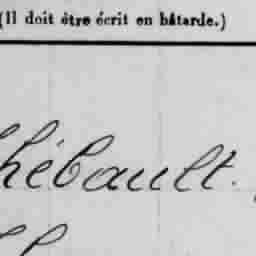 (Il doit être écrit en bâtarde.)
hébault.